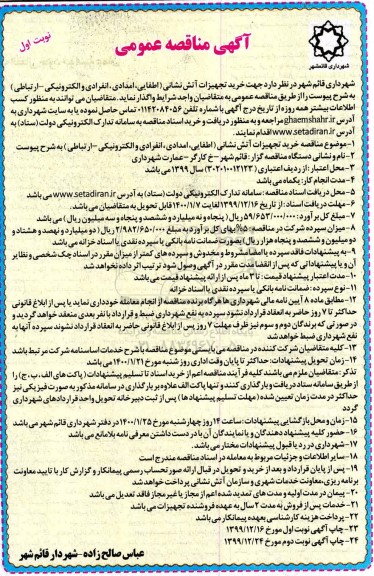 نوبت اول
آگهی مناقصه عمومی
شهرداری قائمشهر
شهرداری قائم شهر در نظر دارد جهت خرید تجهیزات آتش نشانی (اطفایی، امدادی، انفرادی و الکترونیکی –ارتباطی)
به شرح پیوست را از طریق مناقصه عمومی به متقاضیان واجد شرایط واگذار نماید. متقاضیان می توانند به منظور کسب
اطلاعات بیشتر همه روزه از تاریخ درج آگهی با شماره تلفن ۰۱۱۴۲۰۸۴۰۵۶ تماس حاصل نموده یا به سایت شهرداری به
آدرس ghaemshahr.ir مراجعه و به منظور دریافت و خرید اسناد مناقصه به سامانه تدارک الکترونیکی دولت (ستاد) به
آدرس www.setadiran.ir اقدام نمایند.
۱– موضوع مناقصه خرید تجهیزات آتش نشانی (اطفایی، امدادی، انفرادی و الکترونیکی –ارتباطی) به شرح پیوست
۲– نام و نشانی دستگاه مناقصه گزار: قائم شهر –خ کارگر –عمارت شهرداری
۳– محل اعتبار: از ردیف اعتباری (۳۰۲۰۱۰۰۱۲۱۲۳) سال ۱۳۹۹ می باشد
۴– مدت انجام کار: یکماه می باشد
۵– محل دریافت اسناد مناقصه: سامانه تدارک الکترونیکی دولت (ستاد) به آدرس www.setadiran.ir می باشد
۶– مهلت دریافت اسناد: از تاریخ ۱۳۹۹/۱۲/۱۶ لغایت ۱۴۰۰/۱/۷ قابل تحویل به متقاضیان می باشد.
۷– مبلغ کل برآورد: ۵۹/۶۵۳/۰۰۰/۰۰۰ ریال (پنجاه و نه میلیارد و ششصد و پنجاه و سه میلیون ریال) می باشد
۸– میزان سپرده شرکت در مناقصه: ۵٪ بهای کل برآورد به مبلغ ۲/۹۸۲/۶۵۰/۰۰۰ ریال (دو میلیارد و نهصد و هشتاد و
دو میلیون و ششصد و پنجاه هزار ریال) بصورت ضمانت نامه بانکی یا سپرده نقدی یا اسناد خزانه می باشد
۹– به پیشنهادات فاقد سپرده یا امضا مشروط و مخدوش و سپرده های کمتر از میزان مقرر در اسناد چک شخصی و نظایر
آن و یا پیشنهاداتی که پس از انقضا مدت مقرر در آگهی وصول شود ترتیب اثر داده نخواهد شد
۱۰– مدت اعتبار پیشنهاد قیمت: تا ۳ ماه پس از ارائه پیشنهاد قیمت می باشد
۱۱– نوع سپرده: ضمانت نامه بانکی یا سپرده نقدی یا اسناد خزانه
۱۲– مطابق ماده ۸ آیین نامه مالی شهرداری ها هرگاه برنده مناقصه از انجام معامله خودداری نماید یا پس از ابلاغ قانونی
حداکثر تا ۷ روز حاضر به انعقاد قرارداد نشود سپرده به نفع شهرداری ضبط و قرارداد با نفر بعدی منعقد خواهد گردید و
در صورتی که برندگان دوم و سوم نیز ظرف مهلت ۷ روز پس از ابلاغ قانونی حاضر به انعقاد قرارداد نشوند سپرده آنها به
نفع شهرداری ضبط خواهد شد
۱۳– کلیه متقاضیان شرکت کننده در مناقصه می بایستی موضوع مناقصه با شرح خدمات اساسنامه شرکت مرتبط باشد
۱۴– زمان تحویل پیشنهادات: حداکثر تا پایان وقت اداری روز شنبه مورخ ۱۴۰۰/۱/۲۱ می باشد
تذکر: متقاضیان ملزم می باشند کلیه فرآیند مناقصه اعم از خرید اسناد تا تسلیم پیشنهادات (پاکت های الف، ب، ج) را
از طریق سامانه ستاد دریافت و بارگذاری کنند و تنها پاکت الف علاوه بر بارگذاری در سامانه مذکور به صورت فیزیکی نیز
حداکثر در مدت زمان تعیین شده (مهلت تسلیم پیشنهادها) پس از ثبت دبیرخانه تحویل واحد قراردادهای شهرداری
گردد
۱۵– زمان و محل بازگشایی پیشنهادات: ساعت ۱۴ روز چهارشنبه مورخ ۱۴۰۰/۱/۲۵ در دفتر شهرداری قائم شهر می باشد
۱۶– حضور کلیه پیشنهاددهندگان و یا نمایندگان آن با در دست داشتن معرفی نامه بلامانع می باشد
۱۷– شهرداری در رد یا قبول پیشنهادات مختار می باشد.
۱۸– سایر اطلاعات و جزئیات مربوط به معامله در اسناد مناقصه مندرج است
۱۹– پس از پایان قرارداد و بعد از خرید و تحویل در قبال ارائه صورتحساب رسمی پیمانکار و گزارش کار با تایید معاونت
برنامه ریزی، معاونت خدمات شهری و سازمان آتش نشانی پرداخت خواهد شد
۲۰– پیمان در مدت اولیه و مدت های تمدید شده اعم از مجاز یا غیر مجاز فاقد تعدیل می باشد
۲۱– خدمات پس از فروش به مدت ۲ سال به عهده فروشنده تجهیزات می باشد
۲۲– پرداخت هزینه کارشناسی بعهده پیمانکار می باشد
۲۳– چاپ آگهی نوبت اول مورخ ۱۳۹۹/۱۲/۱۶
۲۴– چاپ آگهی نوبت دوم مورخ ۱۳۹۹/۱۲/۲۴
عباس صالح زاده –شهردار قائم شهر